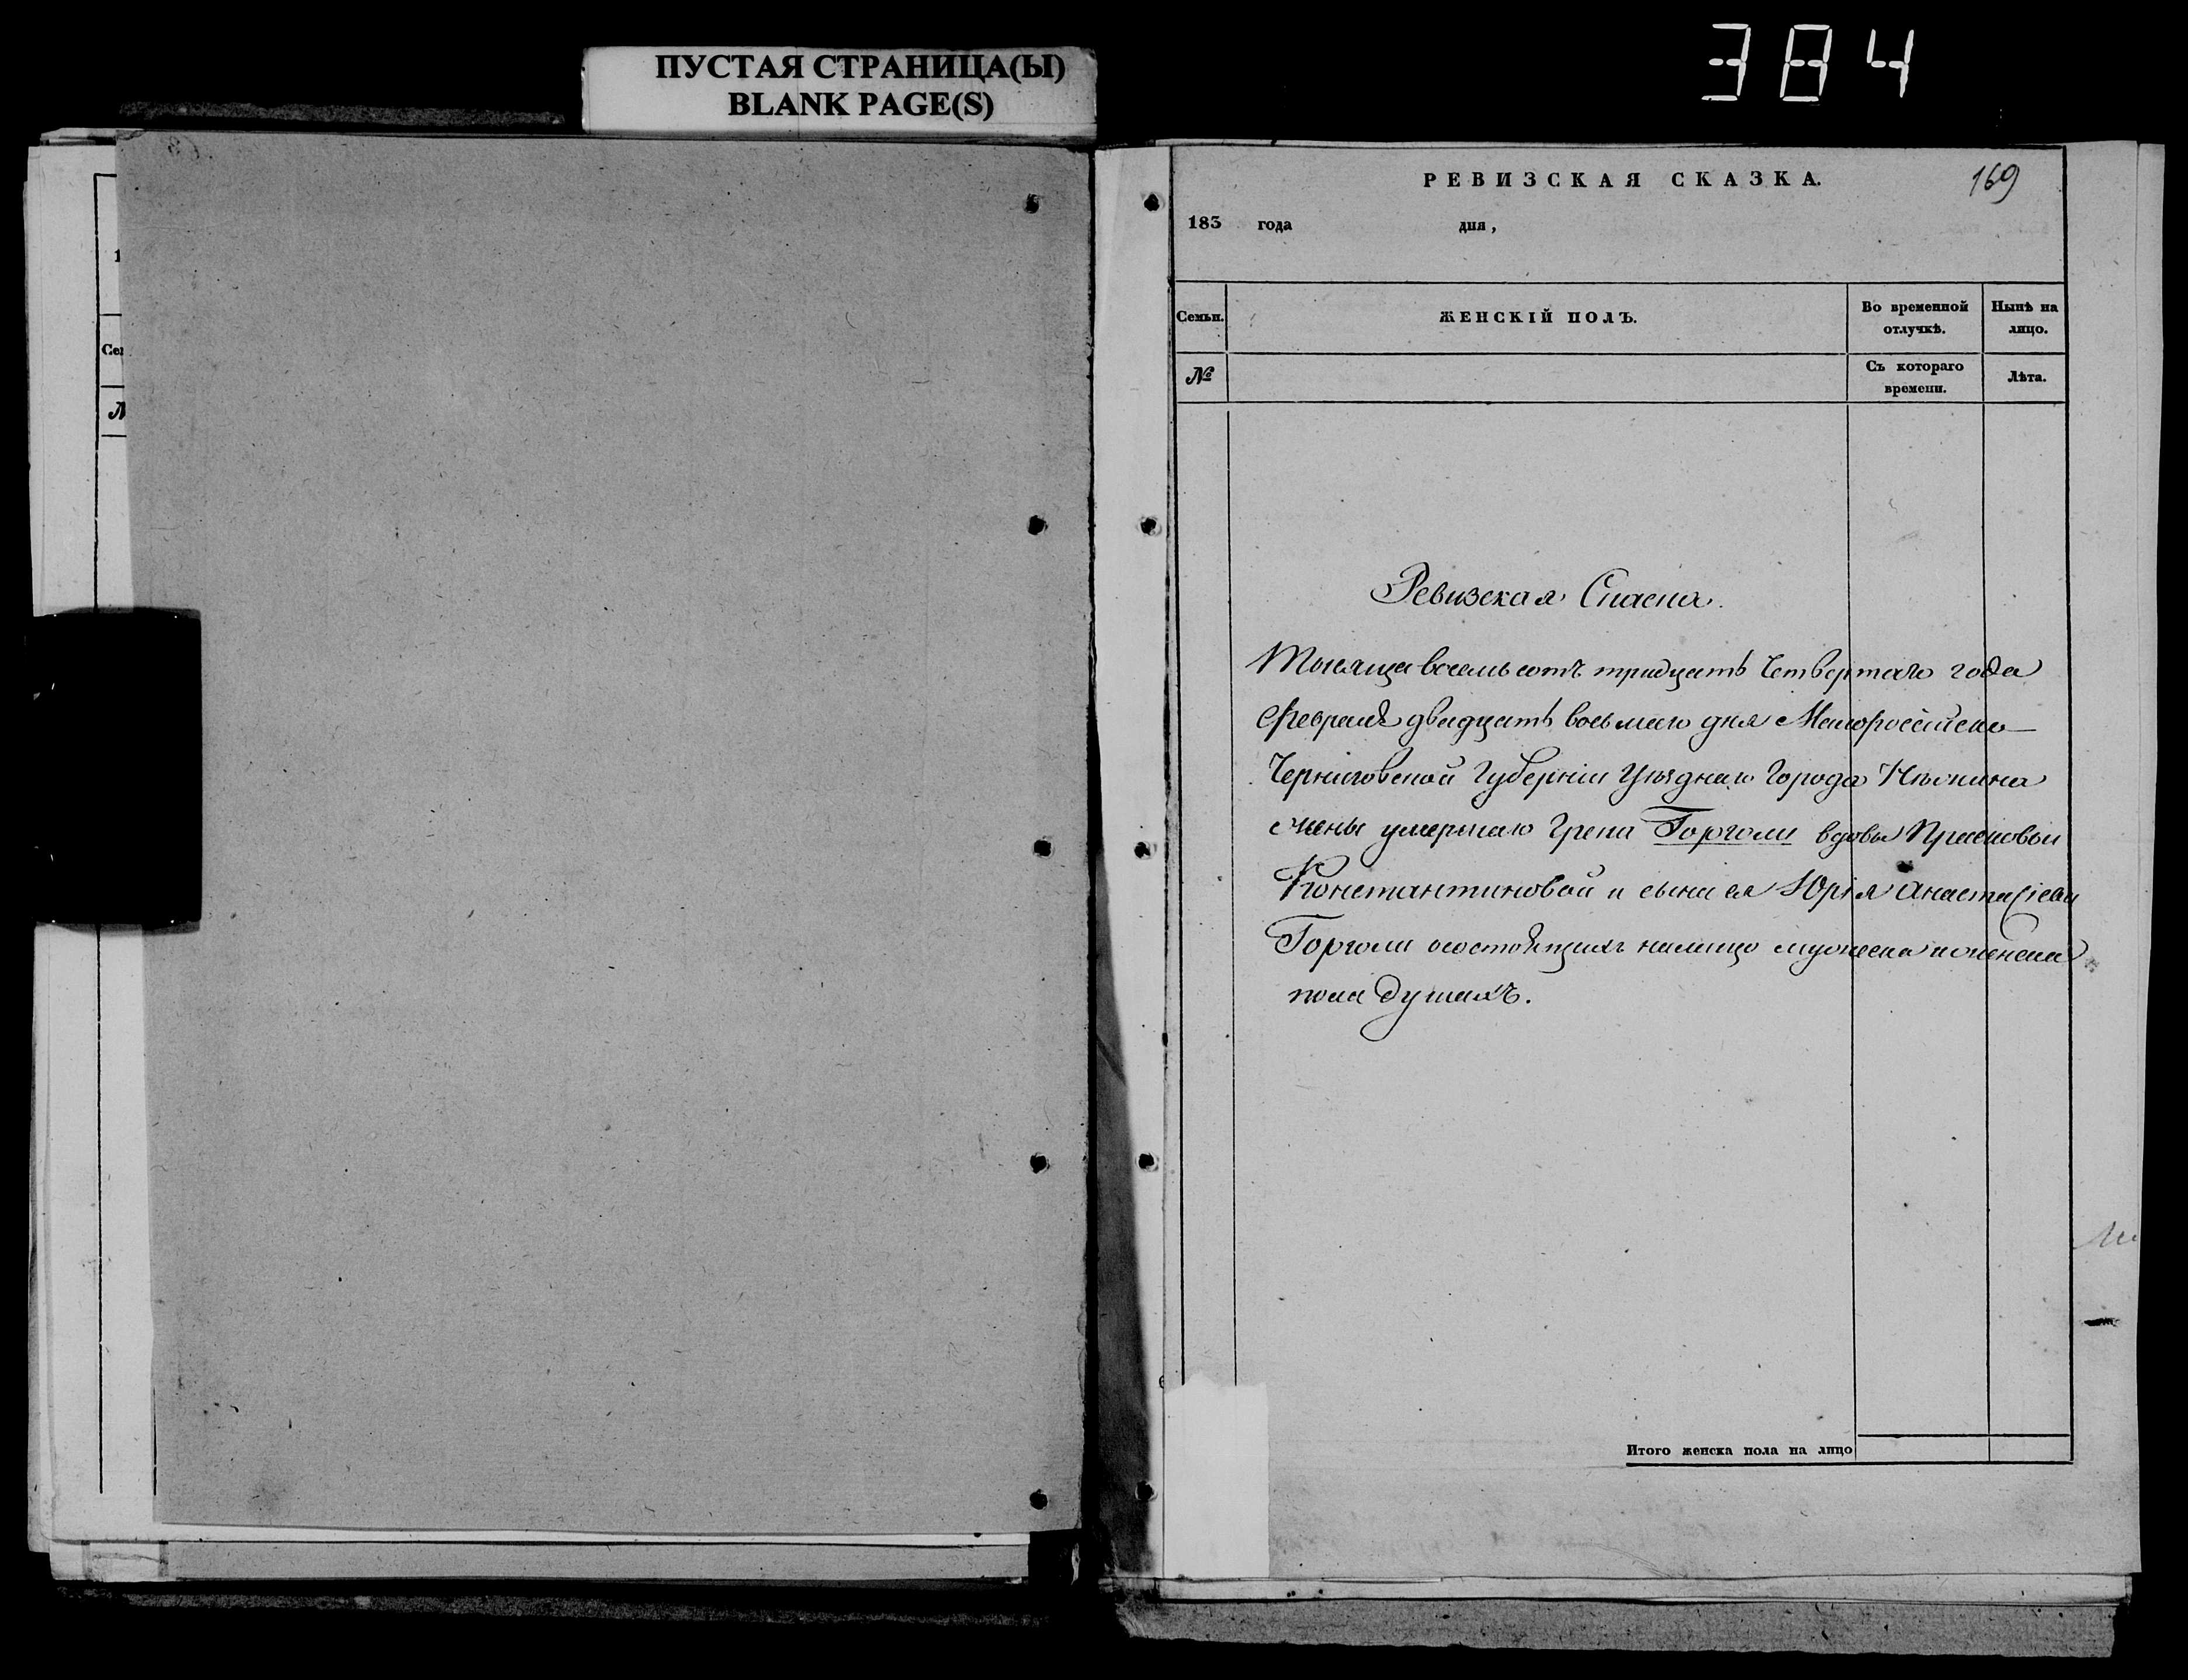 384
ПУСТАЯ СТРАНИЦА(Ы)
BLANK PAGE(S)
РЕВИЗСКАЯ СКАЗКА.
169
183 года дня,
Семьи.
ЖЕНСКІЙ ПОЛЪ.
Во временной отлучкѣ.
Нынѣ на лицо.
№
Съ котораго времени.
Лѣта.
Ревизская Сказка.
Тысяща восемь сотъ тридцать Четвертаго года
Февраля двадцать восьмаго дня Малороссійско
Черниговской Губерніи Уѣзднаго Города Нѣжина
жены умершаго Грека Горголи вдовы Прасковьи
Константиновой и сына ея Юрія Анастасіева
Горголи осостоящихъ налицо мужеска и женска
пола душахъ.
Итого женска пола на лицо